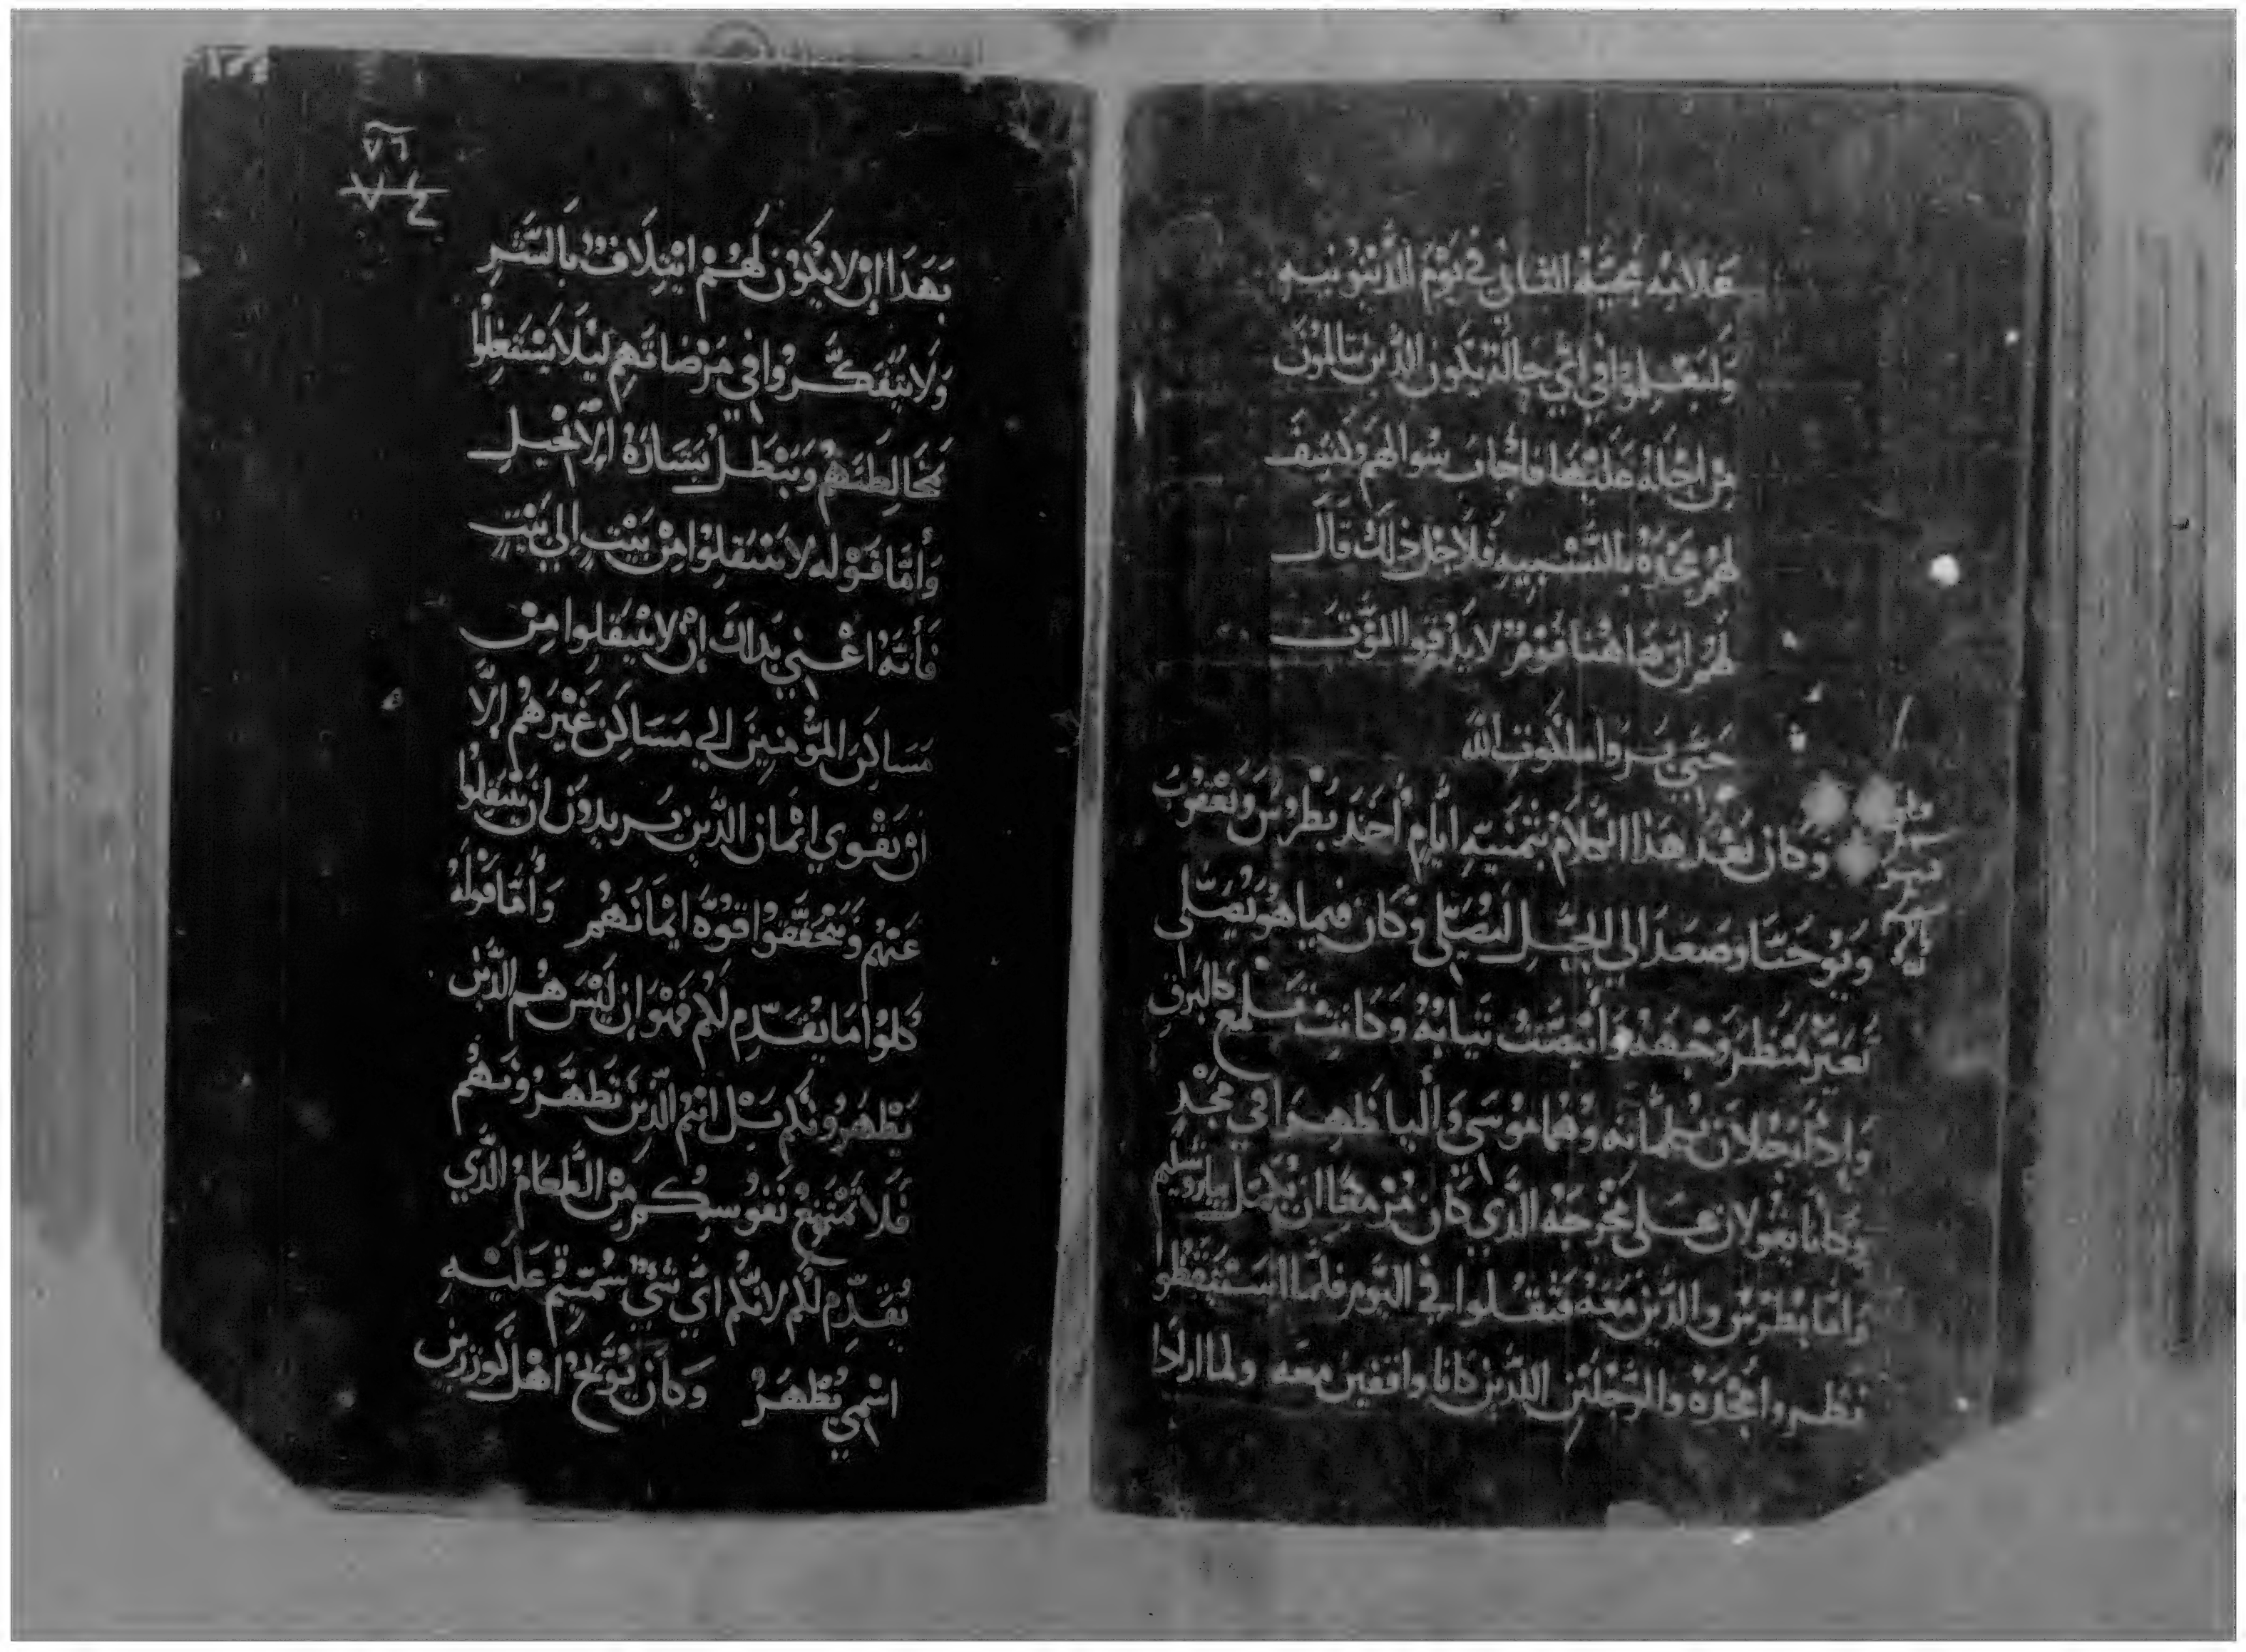 علامه مجيه الثاني في يوم الدينونيه
وليعلموا في اي حاله يكون الدين يتالمون
من اجله علينا فاجاب سوالهم وكشف
لهم مجده بالتشبيه فلاجل ذلك قال
لهم ان هاهنا قوم لا يدقوا الموت
حتي يروا ملكوت الله
وكان بعد هذا الكلام بثمنيه ايام أحد بطرس ويعقوب
ويوحنا وصعد الي الجبل ليصلي وكان فيما هو يصلي
تغير منظر وجهه وأبيضت ثيابه وكانت تلمع كالبرق
وإذا رجلان يكلمانه وهما موسى وأليا ظهرا في مجد
وكانا يقولان على مخرجه الدي كان مزمعا ان يكمل بياروشليم
واما بطرس والدين معه فثقلوا في النوم فلما استيقظوا
نظروا مجده والرجلين اللدين كانا واقفين معه ولما ارادا
٧٦
٧٤
بهدا إن لا يكون لهم ايتلاف بالشر
ولا يتفكروا في مرضاتهم ليلا يشتغلوا
مخالطتهم وتبطل بشارة الانجيل
وأما قوله لا تنتقلوا من بيت الي بيت
فأنه اعني بدلك إن لا ينتقلوا من
مساكن المؤمنين الي مساكن غيرهم إلا
ان يقوي ايمان الدين يريدون ان ينتقلوا
عنهم ويتحققوا قوة ايمانهم وأما قوله
كلوا ما يقدم لكم فهو إن ليس هم الدين
يطهرونكم بل انتم الدين تطهرونهم
فلا تمتنع نفوسكم من الطعام الدي
يقدم لكم لانكم اي شي سميتم عليه
اسمي يطهر وكان يوبخ اهل كورزين